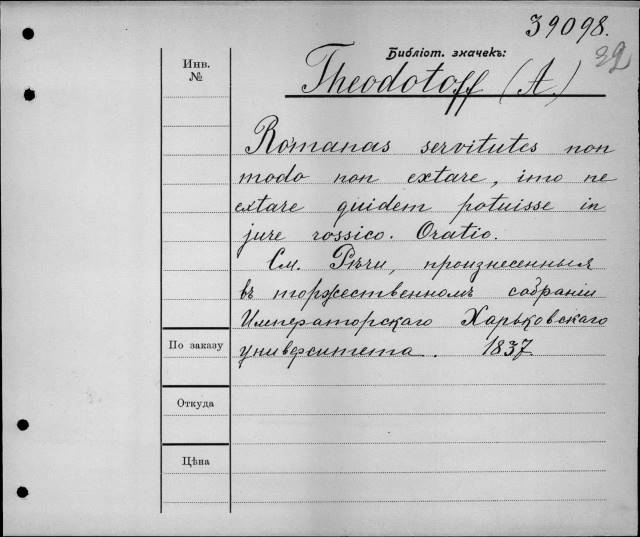 39098.
Библіот. значекъ:
32
Инв.
№
Theodotoff (A.)
Romanas servitutes non
modo non extare, imo ne
extare quidem potuisse in
jure rossico. Oratio.
См. Рѣчи, произнесенныя
въ торжественномъ собраніи
Императорскаго Харьковскаго
университета. 1837
По заказу
Откуда
Цѣна